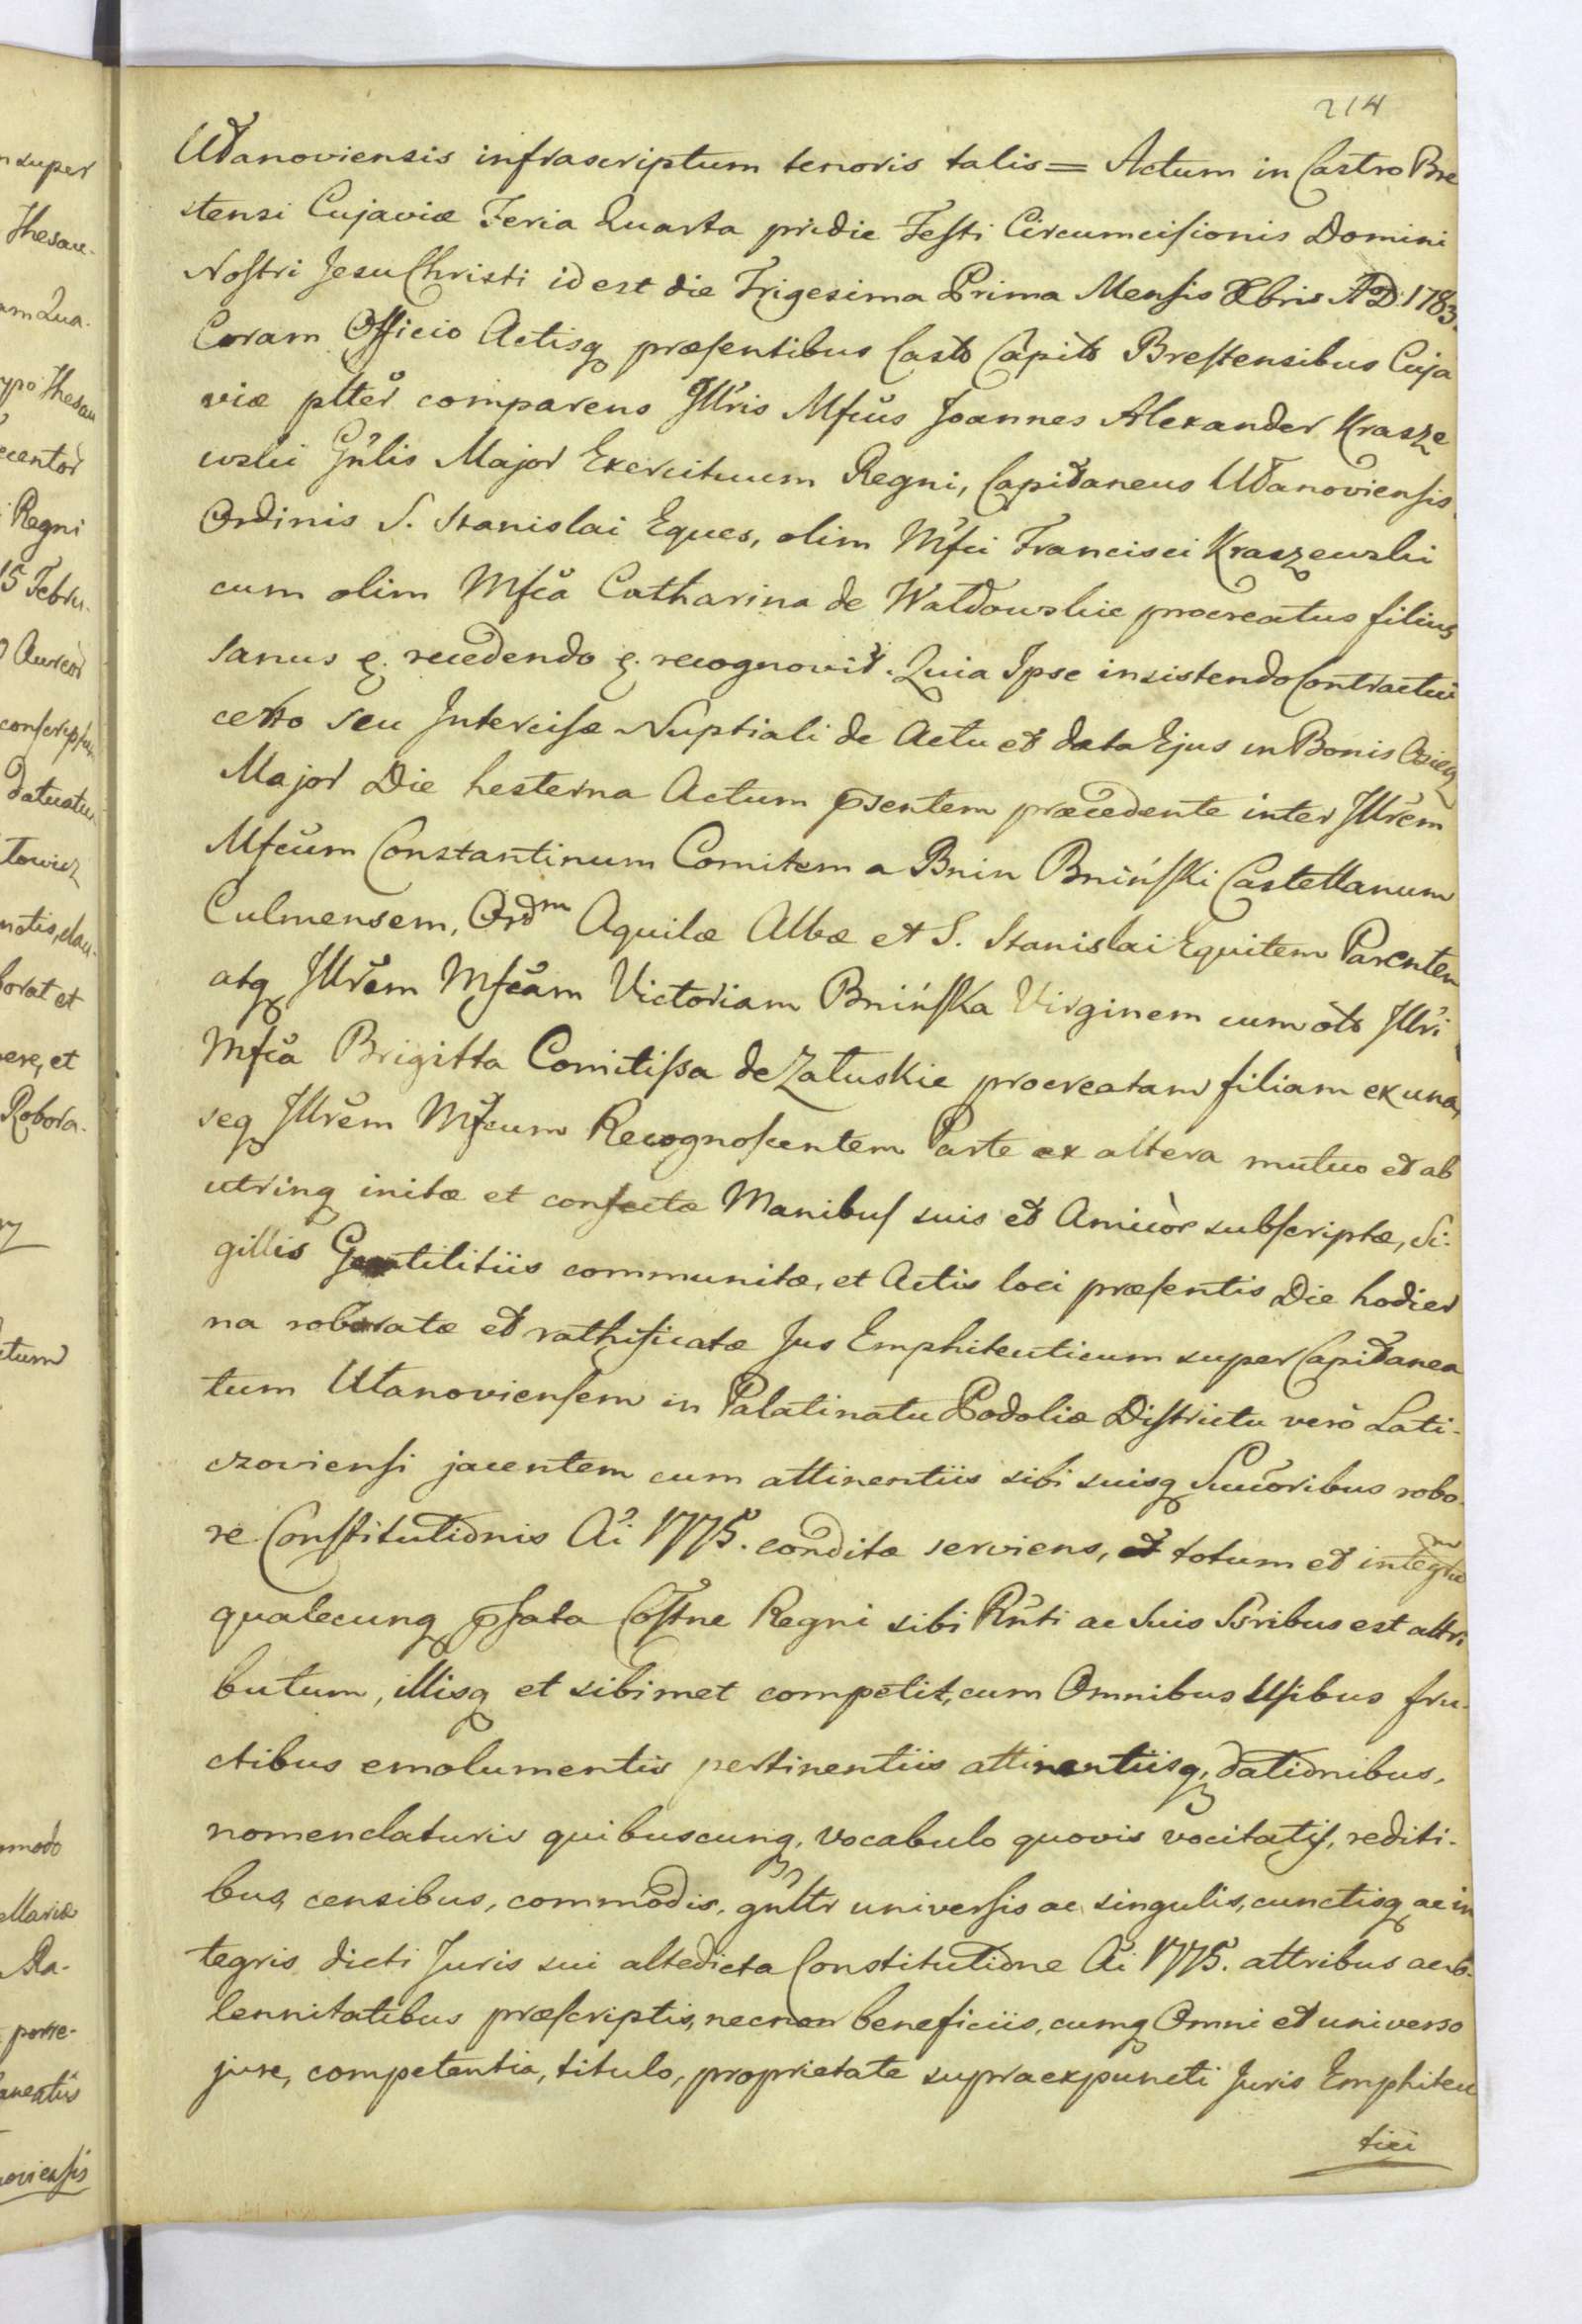 214
Utanoviensis infrascriptum tenoris talis = Actum in Castro Bre
stensi Cujaviæ Feria Quarta pridie Festi Circumcisionis Domini
Nostri Jesu Christi id est die Trigesima Prima Mensis Xbris A.D. 1783.
Coram Officio Actisq præsentibus Casto Capito Brestensibus Cuja
viæ pltter comparens Jllris Mfcus Joannes Alexander Krasze
wski Gnlis Major Exercituum Regni, Capitaneus Utanoviensis.
Ordinis S. Stanislai Eques, olim Mfci Francisci Kraszewski
cum olim Mfca Catharina de Watdowskie procreatus filius
sanus &. recedendo &. recognovit. Quia Ipse insistendo Contractui
certo seu Intercisæ Nuptiali de Actu et data Ejus in Bonis
Major Die hesterna Actum psentem præcedente inter Jllrem
Mfcum Constantinum Comitem a Bnin Bniński Castellanum
Culmensem, Ordm Aquilæ Albæ et S. Stanislai Equitem Parentem
atq Jllrem Mfcam Victoriam Bnińska Virginem cum olo Jllri
Mfca Brigitta Comitissa de Załuskie procreatam filiam ex una,
seq Jllrem Mfcum Recognoscentem Parte ex altera mutuo et ab
utrinq initæ et confectæ Manibus suis et Amicor subscriptæ, Si-
gillis Gentilitiis communitæ, et Actis loci præsentis Die hodier
na roboratæ et rathificatæ Jus Emphiteuticum super Capitanea
tum Utanoviensem in Palatinatu Podoliæ Districtu vero Lati-
czoviensi jacentem cum attinentiis sibi suisq Succoribus robo-
re Constitutionis Ai 1775. conditæ serviens, et totum et integrum
qualecunq psata Costne Regni sibi Rnti ac Suis Ssribus est attri
butum, illisq et sibimet competit, cum Omnibus usibus fru-
ctibus emolumentis pertinentiis attinentiisq, dationibus,
nomenclaturis quibuscunq, vocabulo quovis vocitatis, rediti-
bus, censibus, commodis, gnltr universis ac singulis, cunctisq ac in
tegris dicti Juris sui altedicta Constitutione Ai 1775. attribus ac so-
lennitatibus præscriptis, necnon beneficiis, cumq Omni et universo
jure, competentia, titulo, proprietate supraexpuncti Juris Emphiteu
tici